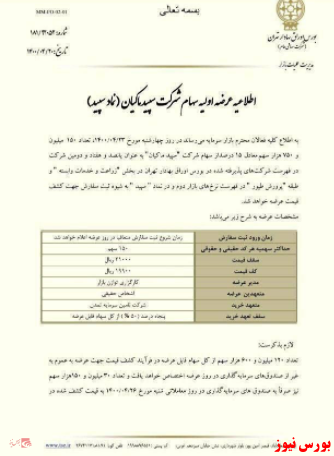 بسمه تعالی
بورس اوراق بهادار تهران
(شرکت سهامی عام)
مدیریت عملیات بازار
۱۸۱/
تاریخ:
اطلاعیه عرضه اولیه سهام شرکت سپید ماکیان (نماد سپید)
به اطلاع کلیه فعالان محترم بازار سرمایه می‌رساند در روز چهارشنبه مورخ ۱۴۰۰/۰۴/۲۳، تعداد ۱۵۰ میلیون
و ۷۵۰ هزار سهم معادل ۱۵ درصد از سهام شرکت "سپید ماکیان" به عنوان پانصد و هفتاد و دومین شرکت
در فهرست شرکت‌های پذیرفته شده در بورس اوراق بهادار تهران در بخش "زراعت و خدمات وابسته" و
طبقه "پرورش طیور" در فهرست نرخ‌های بازار دوم و در نماد "سپید" به شیوه ثبت سفارش جهت کشف
قیمت عرضه خواهد شد.
مشخصات عرضه به شرح زیر می‌باشد:
زمان ورود ثبت سفارش زمان شروع ثبت سفارش متعاقباً در روز عرضه اعلام خواهد شد
حداکثر سهمیه هر کد حقیقی و حقوقی ۱۵۰ سهم
سقف قیمت ۲۱۰۰۰ ریال
کف قیمت ۱۹۹۰۰ ریال
مدیر عرضه کارگزاری توازن بازار
متعهدین عرضه اشخاص حقیقی
متعهد خرید شرکت تامین سرمایه تمدن
سقف تعهد خرید پنجاه درصد (۵۰٪) از کل سهام قابل عرضه
لازم بذکر است:
تعداد ۱۲۰ میلیون و ۶۰۰ هزار سهم از کل سهام قابل عرضه در فرآیند کشف قیمت جهت عرضه به عموم به
غیر از صندوق‌های سرمایه‌گذاری در روز عرضه اختصاص خواهد یافت و تعداد ۳۰ میلیون و ۱۵۰ هزار سهم
نیز صرفاً به صندوق های سرمایه‌گذاری در روز معاملاتی شنبه مورخ ۱۴۰۰/۰۴/۲۶ در قیمت کشف شده در
بورس نیوز